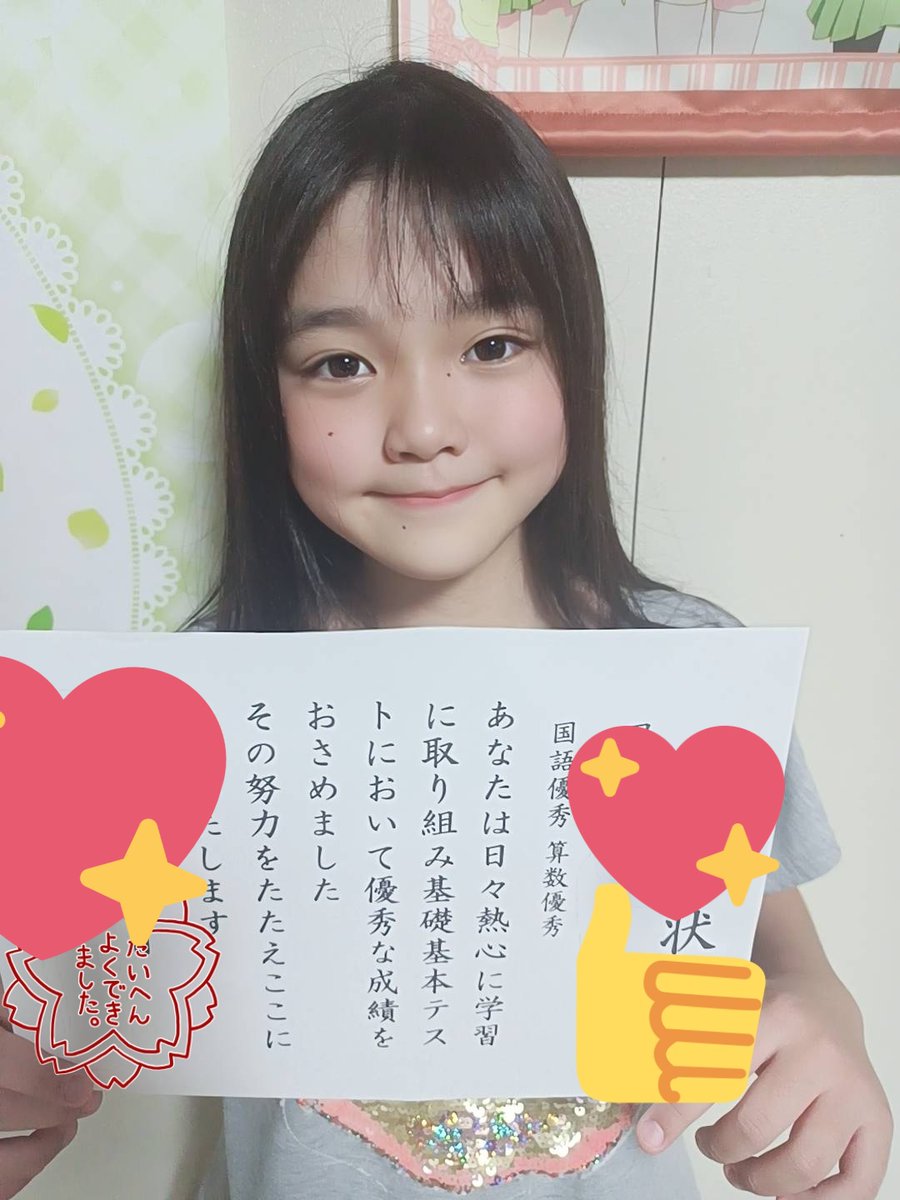 状
国語優秀 算数優秀
あなたは日々熱心に学習
に取り組み基礎基本テス
トにおいて優秀な成績を
おさめました
その努力をたたえここに
します
たいへん
よくでき
ました。